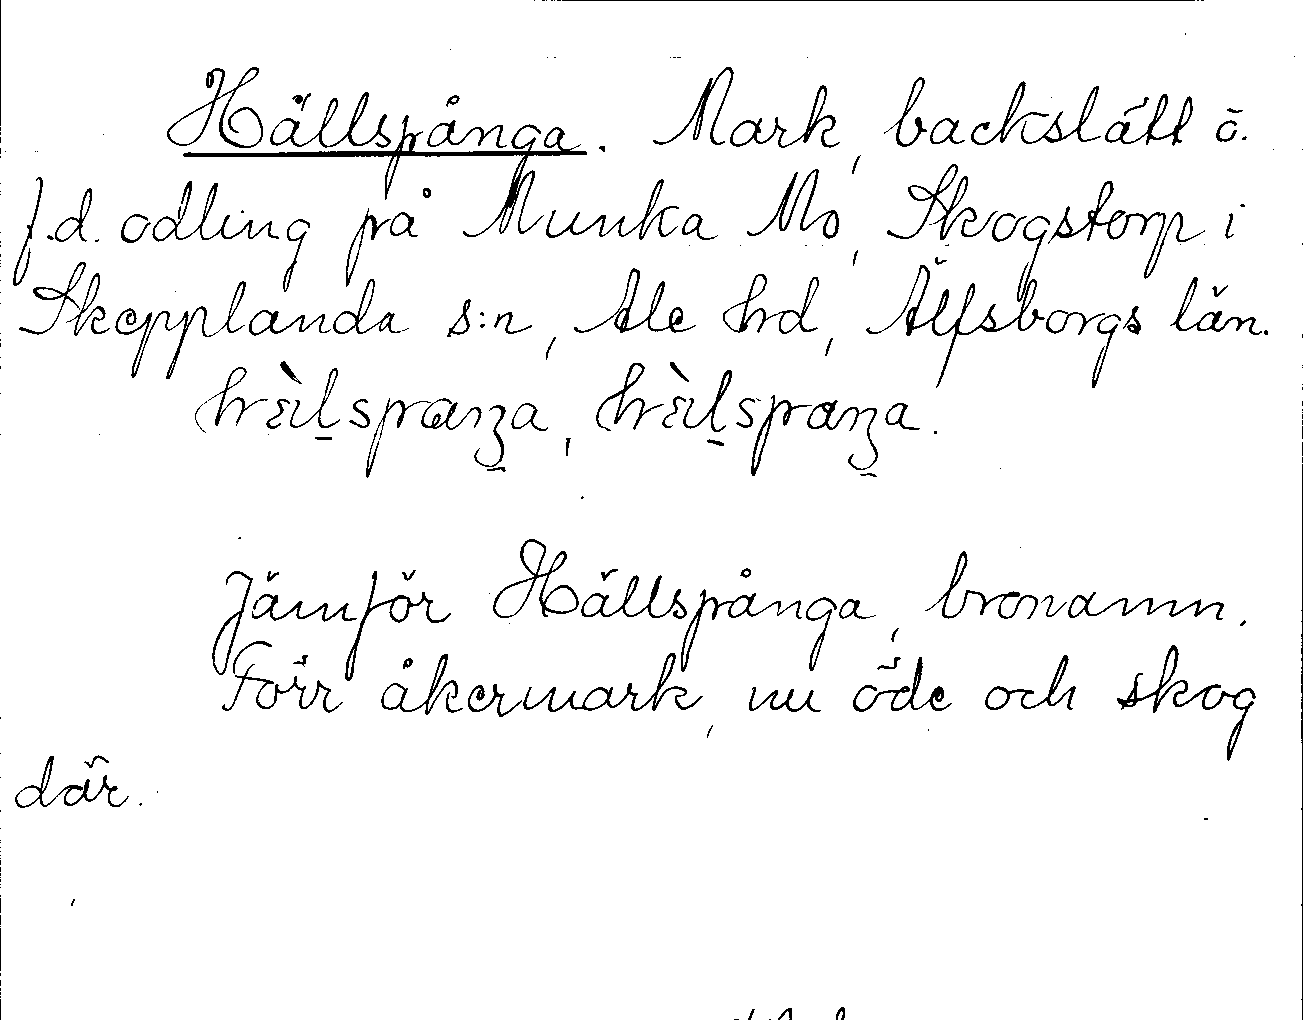 Hällspånga. Mark, backslätt ö.
f.d. odling på Munka Mo, Skogstorp i
Skepplanda s:n, Ale hd, Älfsborgs län.
Jämför Hällspånga, bronamn.
Förr åkermark, nu öde och skog
där.